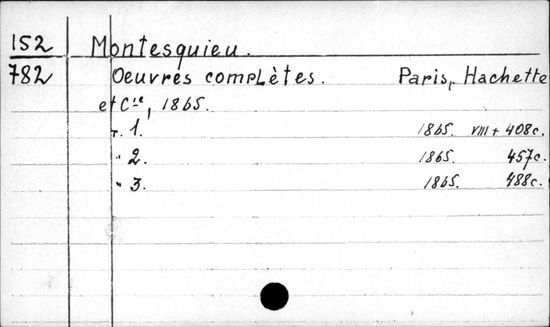 152 Montesquieu.
782 Oeuvres complètes. Paris, Hachette
et Cie, 1865.
т. 1. 1865. VIII + 408c.
" 2. 1865. 457c.
" 3. 1865. 488c.